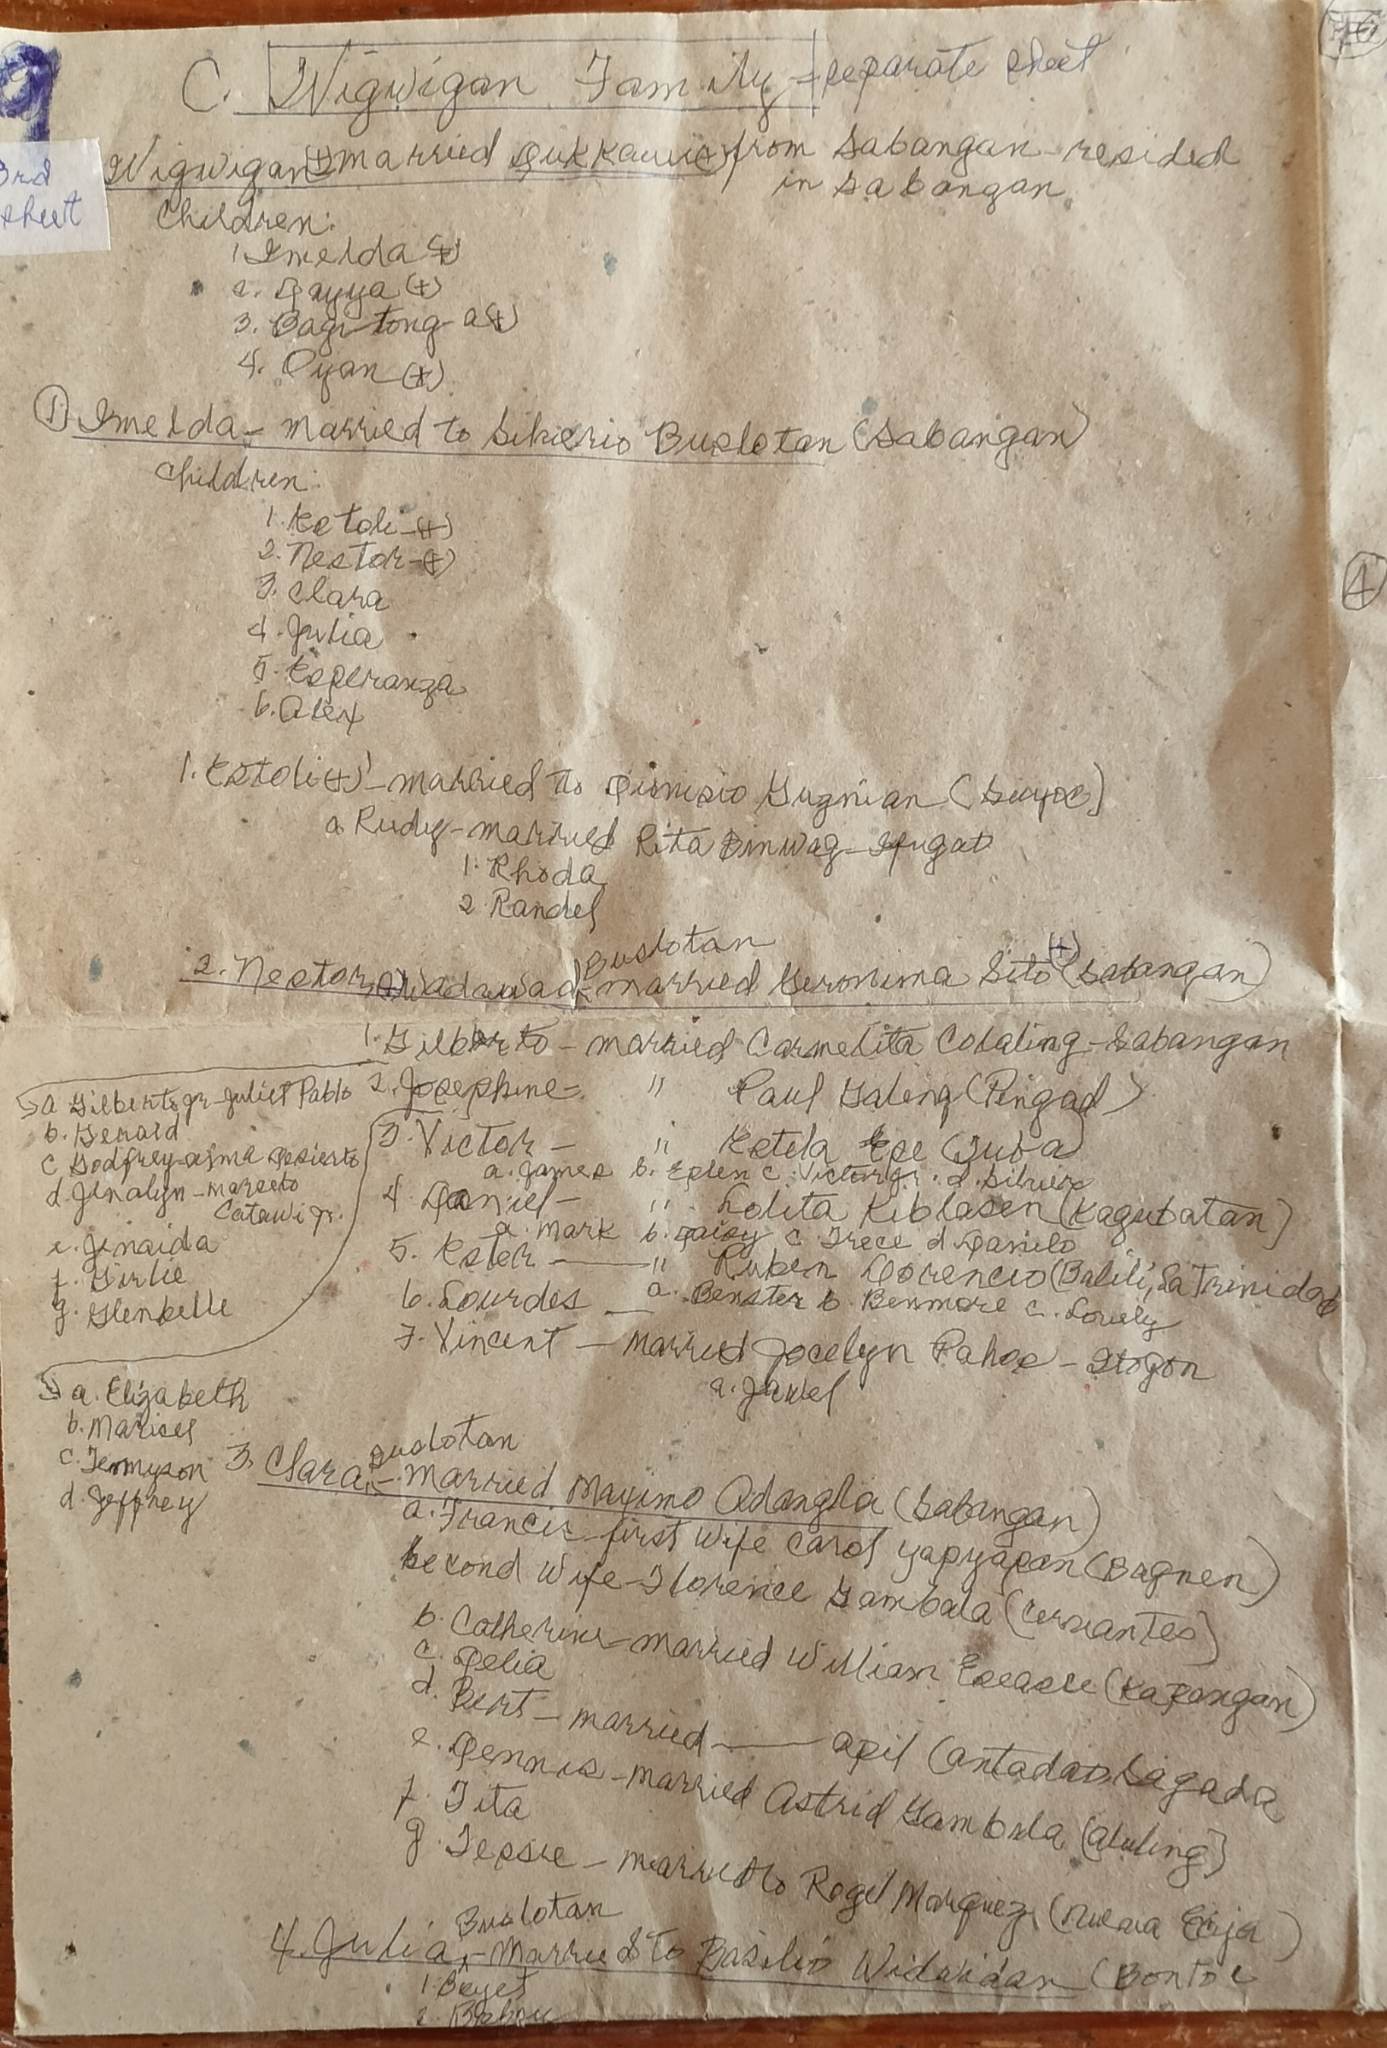 C. Wigwigan Family - separate sheet
9
3rd sheet
Wigwigan (+) married from Sabangan - resided
in Sabangan
Children:
1. Imelda (+)
2. Dayya (+)
3. Bagi-tong-a (+)
4. Oyan (+)
① Imelda - married to Silverio Buslotan (Sabangan)
Children:
1. Estoli - (+)
2. Nestor - (+)
3. Clara
4. Julia
5. Esperanza
6. Alex
1. Estoli (+) - married to Dionisio Gugnian (Suyoc)
a. Rudy - married Rita Binwag - Ifugao
1. Rhoda
2. Randel
2. Nestor (+) Wadawad Buslotan - married Geronima Sito (+) (Sabangan)
1. Gilberto - married Carmelita Colaling - Sabangan
2. Josephine - " Paul Galeng (Pingad)
3. Victor - " Estela Epe (Tuba)
a. James b. Eplen c. Victor jr. d. Silver
4. Daniel - " Lolita Kiblasen (Kagubatan)
a. Mark b. Daisy c. Trece d. Danilo
5. Ester - " Ruben Lorencio (Balili, La Trinidad)
a. Benster b. Benmore c. Lovely
6. Lourdes -
7. Vincent - married Jocelyn Pahoe - Itogon
a. Jawel
a Gilberto jr - Juliet Pablo
b. Gerald
c Godfrey - Desierto
d. Jenalyn - Marcelo
Catawi jr.
e. Jenaida
f. Girlie
g. Glenbelle
a. Elizabeth
b. Maricel
c. Tennyson
d. Jeffrey
3. Clara Buslotan - married Maximo Adangla (Sabangan)
a. Francis - first wife Carol Yapyapan (Bagnen)
second wife - Florence Gambala (Cervantes)
b. Catherine - married William (Kapangan)
c. Delia
d. Bert - married —— Apil (Antadao, Sagada
e. Dennis - married Astrid Gambala (Aluling)
f. Tita
g. Tessie - married to Rogel Marquez (Nueva Ecija)
4. Julia Buslotan - married to Basilio Widwidan (Bontoc
1. Beyet
2.
4